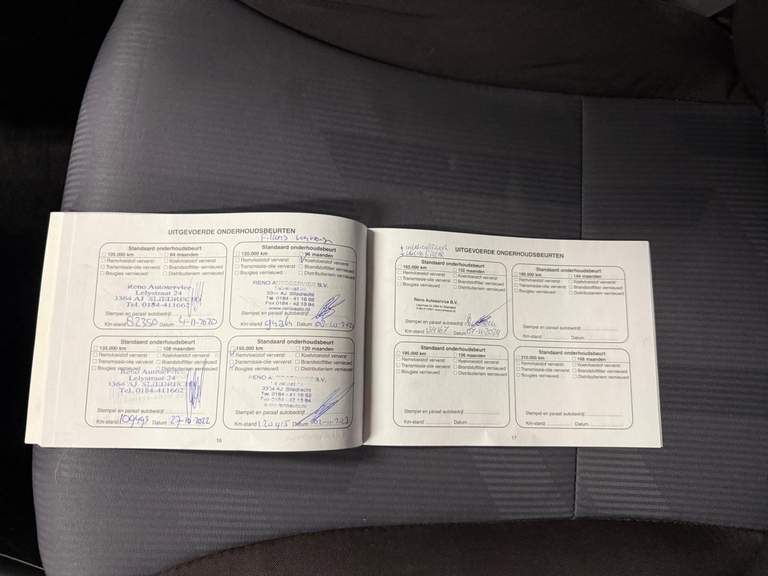 UITGEVOERDE ONDERHOUDSBEURTEN
Standaard onderhoudsbeurt
105.000 km 84 maanden
Remvloeistof ververst Koelvloeistof ververst
Transmissie-olie ververst Brandstoffilter vernieuwd
Bougies vernieuwd Distributieriem vernieuwd
Reno Autoservice
Lelystraat 24
3364 AJ SLIEDRECHT
Tel. 0184-411662
Stempel en paraaf autobedrijf
Km-stand 82350 Datum 4-11-2020
Standaard onderhoudsbeurt
120.000 km 96 maanden
Remvloeistof ververst Koelvloeistof ververst
Transmissie-olie ververst Brandstoffilter vernieuwd
Bougies vernieuwd Distributieriem vernieuwd
RENO AUTOSERVICE B.V.
3364 AJ Sliedrecht
Tel. 0184 - 41 16 62
Fax 0184 - 42 13 84
Stempel en paraaf autobedrijf
Km-stand Datum
Standaard onderhoudsbeurt
135.000 km 108 maanden
Remvloeistof ververst Koelvloeistof ververst
Transmissie-olie ververst Brandstoffilter vernieuwd
Bougies vernieuwd Distributieriem vernieuwd
Reno Autoservice
Lelystraat 24
3364 AJ SLIEDRECHT
Tel. 0184-411662
Stempel en paraaf autobedrijf
Km-stand Datum 27-10-2022
Standaard onderhoudsbeurt
150.000 km 120 maanden
Remvloeistof ververst Koelvloeistof ververst
Transmissie-olie ververst Brandstoffilter vernieuwd
Bougies vernieuwd Distributieriem vernieuwd
RENO B.V.
3364 AJ Sliedrecht
Tel. 0184 - 41 16 62
Fax 0184 - 42 13 84
Stempel en paraaf autobedrijf
Km-stand 120415 Datum
16
UITGEVOERDE ONDERHOUDSBEURTEN
Standaard onderhoudsbeurt
165.000 km 132 maanden
Remvloeistof ververst Koelvloeistof ververst
Transmissie-olie ververst Brandstoffilter vernieuwd
Bougies vernieuwd Distributieriem vernieuwd
Reno Autoservice B.V.
Stempel en paraaf autobedrijf
Km-stand Datum
Standaard onderhoudsbeurt
180.000 km 144 maanden
Remvloeistof ververst Koelvloeistof ververst
Transmissie-olie ververst Brandstoffilter vernieuwd
Bougies vernieuwd Distributieriem vernieuwd
Stempel en paraaf autobedrijf
Km-stand Datum
Standaard onderhoudsbeurt
195.000 km 156 maanden
Remvloeistof ververst Koelvloeistof ververst
Transmissie-olie ververst Brandstoffilter vernieuwd
Bougies vernieuwd Distributieriem vernieuwd
Stempel en paraaf autobedrijf
Km-stand Datum
Standaard onderhoudsbeurt
210.000 km 168 maanden
Remvloeistof ververst Koelvloeistof ververst
Transmissie-olie ververst Brandstoffilter vernieuwd
Bougies vernieuwd Distributieriem vernieuwd
Stempel en paraaf autobedrijf
Km-stand Datum
17